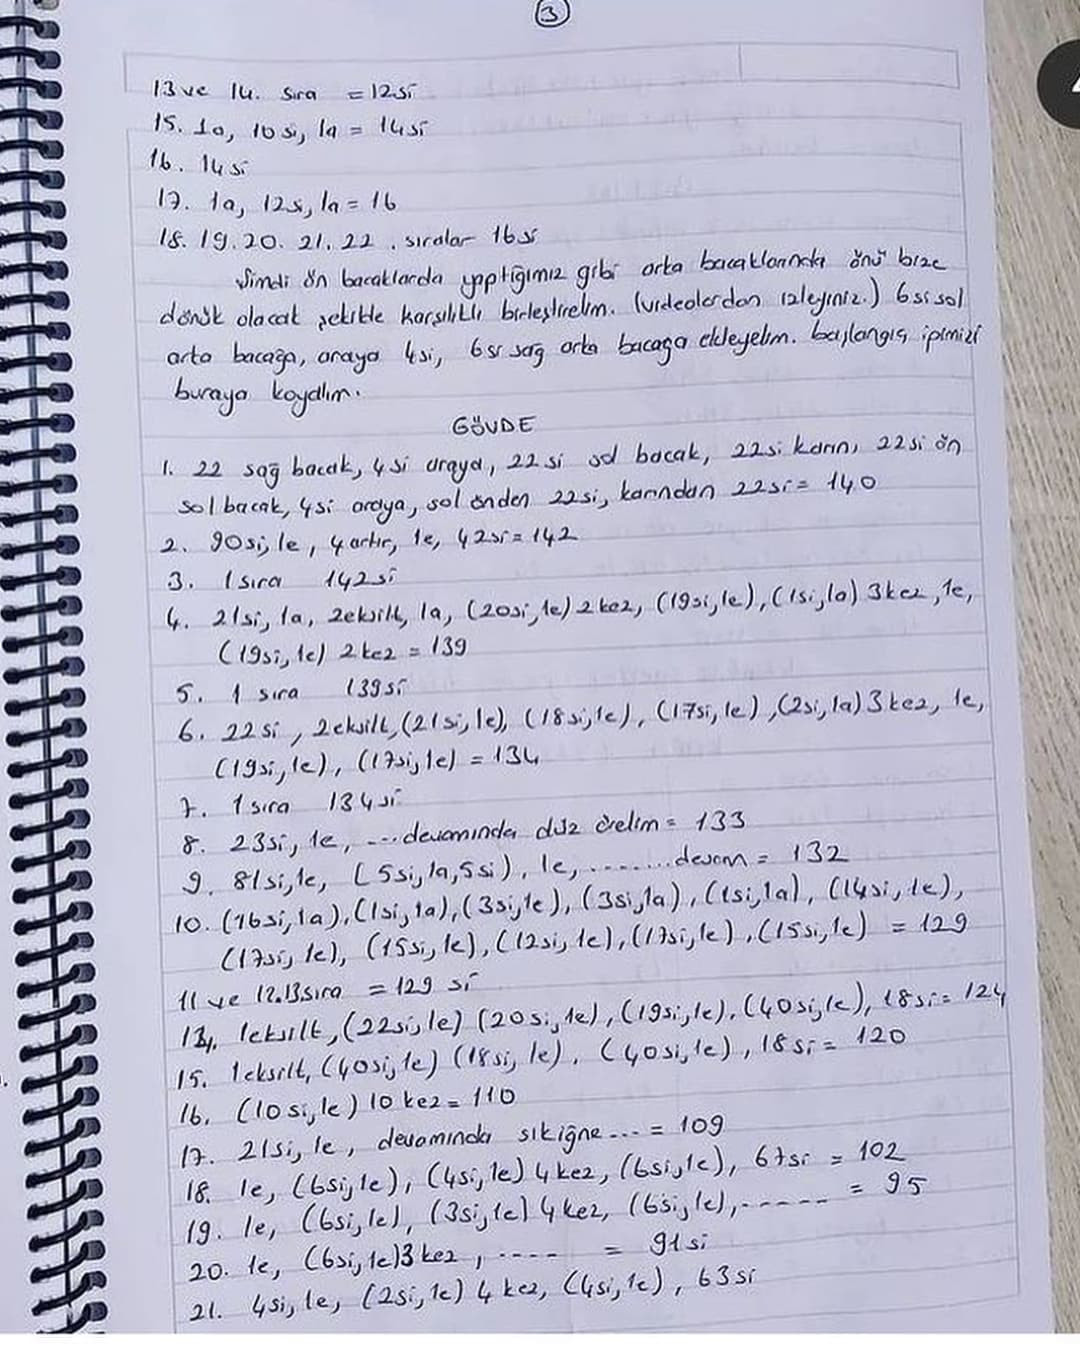 3
13 ve 14. sıra = 12si
15. 1a, 10si, 1a = 14si
16. 14si
17. 1a, 12si, 1a = 16
18. 19. 20. 21. 22. sıralar 16si
Şimdi ön bacaklarda yaptığımız gibi arka bacaklarında önü bize
dönük olacak şekilde karşılıklı birleştirelim. (videolardan izleyiniz.) 6si sol
arka bacağa, araya 4si, 6si sağ arka bacağa ekleyelim. başlangıç ipimizi
buraya koyalım.
GÖVDE
1. 22 sağ bacak, 4si araya, 22si sol bacak, 22si karın, 22si ön
sol bacak, 4si araya, sol önden 22si, karından 22si = 140
2. 90si, 1e, 4 artır, 1e, 42si = 142
3. 1 sıra 142si
4. 21si, 1a, 2eksilt, 1a, (20si, 1e) 2 kez, (19si, 1e), (1si, 1a) 3kez, 1e,
(19si, 1e) 2 kez = 139
5. 1 sıra 139si
6. 22si, 2eksilt, (21si, 1e), (18si, 1e), (17si, 1e), (2si, 1a) 3kez, 1e,
(19si, 1e), (17si, 1e) = 134
7. 1 sıra 134si
8. 23si, 1e, ...devamında düz örelim = 133
9. 81si, 1e, (5si, 1a, 5si), 1e, ........devam = 132
10. (16si, 1a), (1si, 1a), (3si, 1e), (3si, 1a), (1si, 1a), (14si, 1e),
(17si, 1e), (15si, 1e), (12si, 1e), (17si, 1e), (15si, 1e) = 129
11 ve 12.13sıra = 129 si
14. 1eksilt, (22si, 1e) (20si, 1e), (19si, 1e), (40si, 1e), 18si = 124
15. 1eksilt, (40si, 1e) (18si, 1e), (40si, 1e), 18si = 120
16. (10si, 1e) 10 kez = 110
17. 21si, 1e, devamında sıkiğne ... = 109
18. 1e, (6si, 1e), (4si, 1e) 4 kez, (6si, 1e), 67si = 102
19. 1e, (6si, 1e), (3si, 1e) 4 kez, (6si, 1e), ------ = 95
20. 1e, (6si, 1e) 3 kez, ---- = 91 si
21. 4si, 1e, (2si, 1e) 4 kez, (4si, 1e), 63si